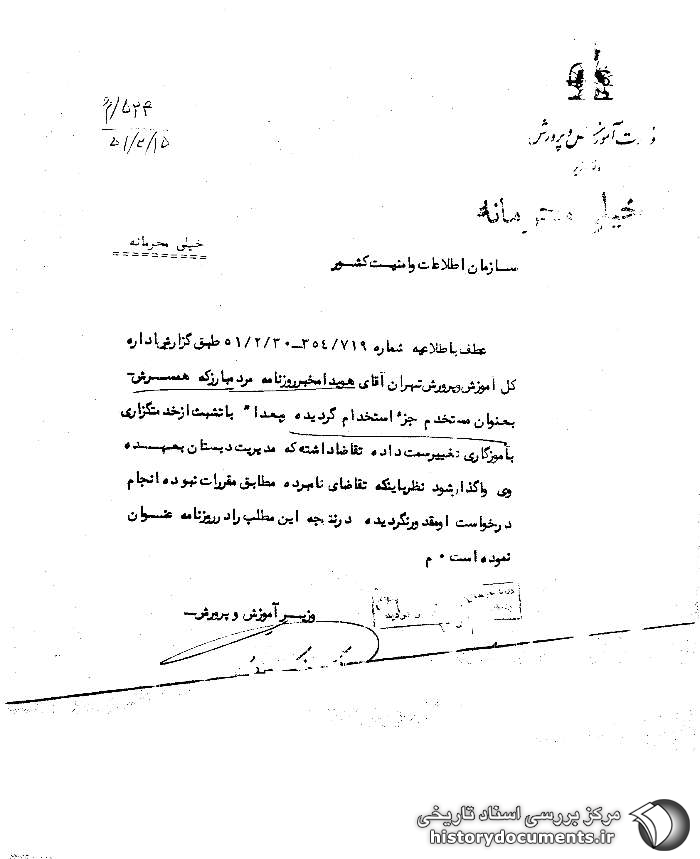 ۵۲۴/م
۵۱/۳/۱۵
وزارت آموزش و پرورش
وزیر
خیلی محرمانه
خیلی محرمانه
سازمان اطلاعات وامنیت کشور
عطف باطلاعیه شماره ۳۵٤/۷۱۹-۵۱/۲/۳۰ طبق گزارش اداره
کل آموزش وپرورش تهران آقای هویدا مخبر روزنامه مرد مبارز که همسرش
بعنوان مستخدم جزء استخدام گردیده وبعدا" باتشبث از خدمتگزاری
بآموزگاری تغییرسمت داده تقاضا داشته که مدیریت دبستان بعهده
وی واگذار شود نظرباینکه تقاضای نامبرده مطابق مقررات نبوده انجام
درخواست او مقدور نگردیده درنتیجه این مطلب را در روزنامه عنوان
نموده است ۰ م
وزیر آموزش و پرورش
مرکز بررسی اسناد تاریخی
historydocuments.ir